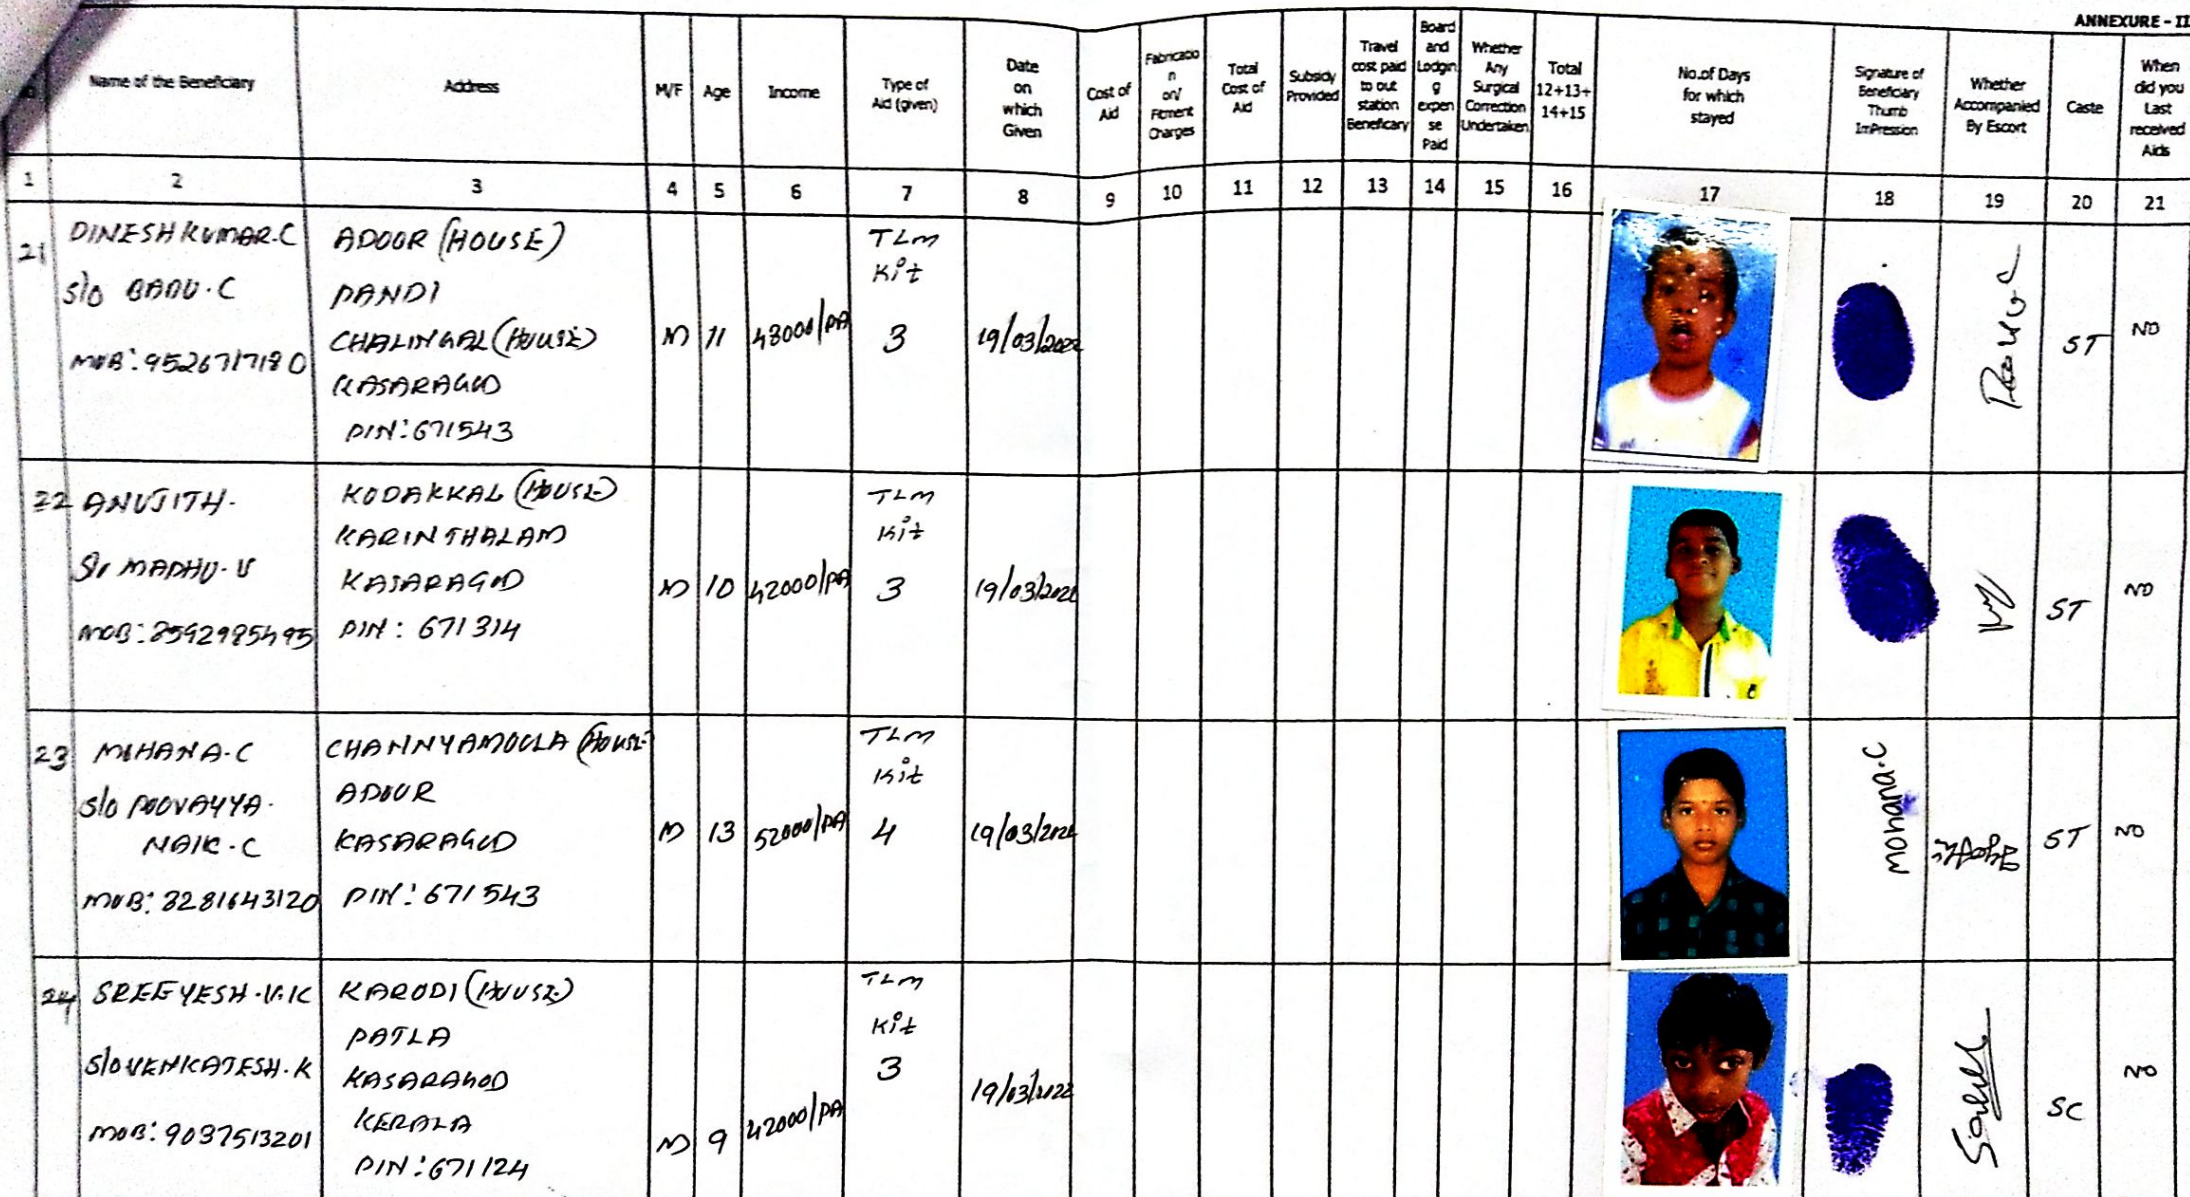 ANNEXURE - II
Name of the Beneficiary
Address
M/F
Age
Income
Type of
Aid (given)
Date
on
which
Given
Cost of
Aid
Fabricatio
n
on/
Fitment
Charges
Total
Cost of
Aid
Subsidy
Provided
Travel
cost paid
to out
station
Beneficary
Board
and
Lodgin
g
expen
se
Paid
Whether
Any
Surgical
Correction
Undertaken
Total
12+13+
14+15
No.of Days
for which
stayed
Signature of
Beneficiary
Thumb
ImPression
Whether
Accompanied
By Escort
Caste
When
did you
Last
received
Aids
1 2 3 4 5 6 7 8 9 10 11 12 13 14 15 16 17 18 19 20 21
21
DINESH KUMAR.C
S/O BABU.C
MOB: 9526717180
ADOOR (HOUSE)
PANDI
CHALINGAL (HOUSE)
KASARAGOD
PIN: 671543
M
11
48000/PA
TLM
Kit
3
19/03/2022
ST
NO
22
ANUJITH.
S/o MADHU.V
MOB: 8592985495
KODAKKAL (HOUSE)
KARINTHALAM
KASARAGOD
PIN: 671314
M
10
42000/PA
TLM
Kit
3
19/03/2022
ST
NO
23
MOHANA.C
S/O POOVAYYA.
NAIK.C
MOB: 8281643120
CHANNYAMOOLA (HOUSE
ADOOR
KASARAGOD
PIN: 671543
M
13
52000/PA
TLM
Kit
4
19/03/2022
mohana.C
ST
NO
24
SREEYESH.V.K
S/O VENKATESH.K
MOB: 9037513201
KARODI (HOUSE)
PATLA
KASARAGOD
KERALA
PIN: 671124
M
9
42000/PA
TLM
Kit
3
19/03/2022
SC
NO